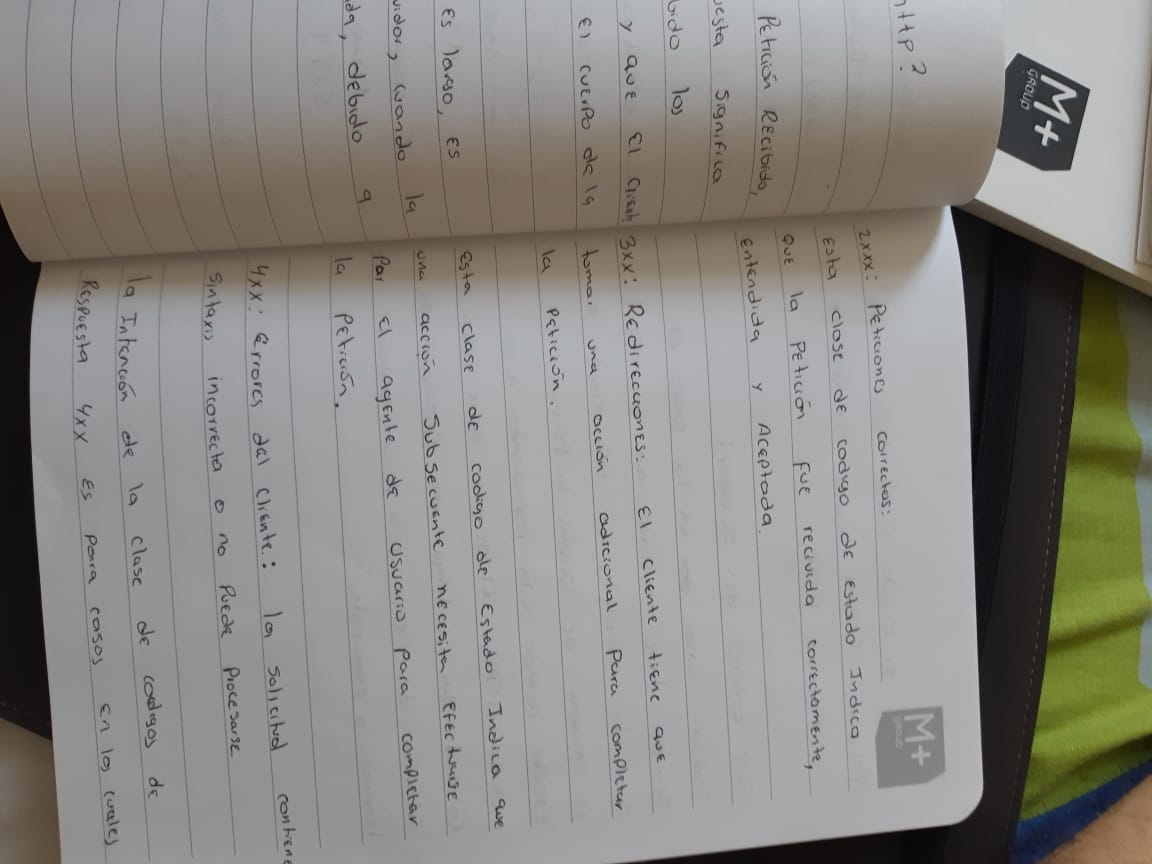 HTTP?
Petición Recibida,
uesta significa
bido los
y que El client
El cuerpo de la
es largo, es
vidor, cuando la
da, debido a
2xxx: Peticiones correctas:
Esta clase de codigo de estado Indica
que la Petición fue recivida correctamente,
entendida y Aceptada.
3xx: Redirecciones: El cliente tiene que
tomar una acción adicional para completar
la Petición.
esta clase de codigo de Estado Indica que
una acción Subsecuente necesita efectuarse
Par el agente de usuario para completar
la Petición.
4xx: Errores del cliente: la solicitud contiene
Sintaxis incorrecta o no Puede Procesarse
la Intención de la clase de codigos de
Respuesta 4xx es para casos en los cuales
M+
GROUP
M+
GROUP